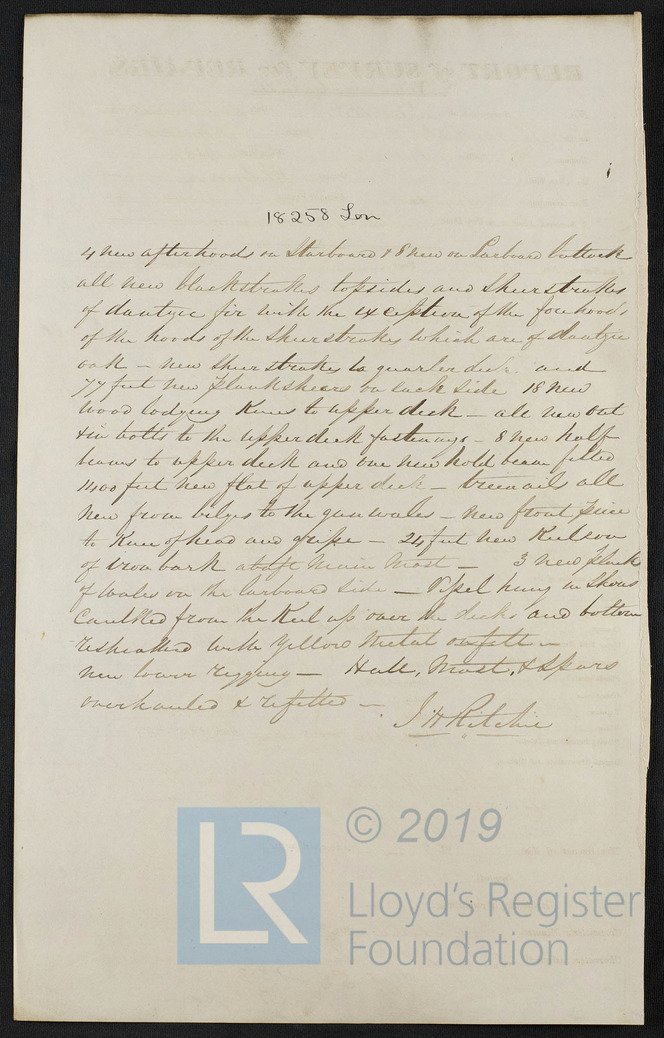 18258 Lon
4 new afterhoods on Starboard & 8 new on Larboard buttock
all new blackstrakes topsides and Sheerstrakes
of dantzic fir with the exception of the forehoods
of the hoods of the Sheerstrakes which are of dantzic
oak – new sheerstrakes to quarter deck and
77 feet new Plank sheers on each side 18 new
wood lodging Knees to upper deck – all new out
& in bolts to the upper deck fastenings – 8 new half
beams to upper deck and one new hold beam fitted
1400 feet new flat of upper deck – treenails all
new from bilges to the gunwales – new front piece
to Knee of head and gripe – 24 feet new Keelson
of iron bark abaft Main Mast – 3 new plank
of Wales on the larboard side – Vessel hung in Shores
Caulked from the Keel up over the decks and bottom
resheathed with Yellow Metal on felt –
new lower rigging – Hull, Mast, & Spars
overhauled & refitted –
J H Ritchie
LR
© 2019
Lloyd's Register
Foundation